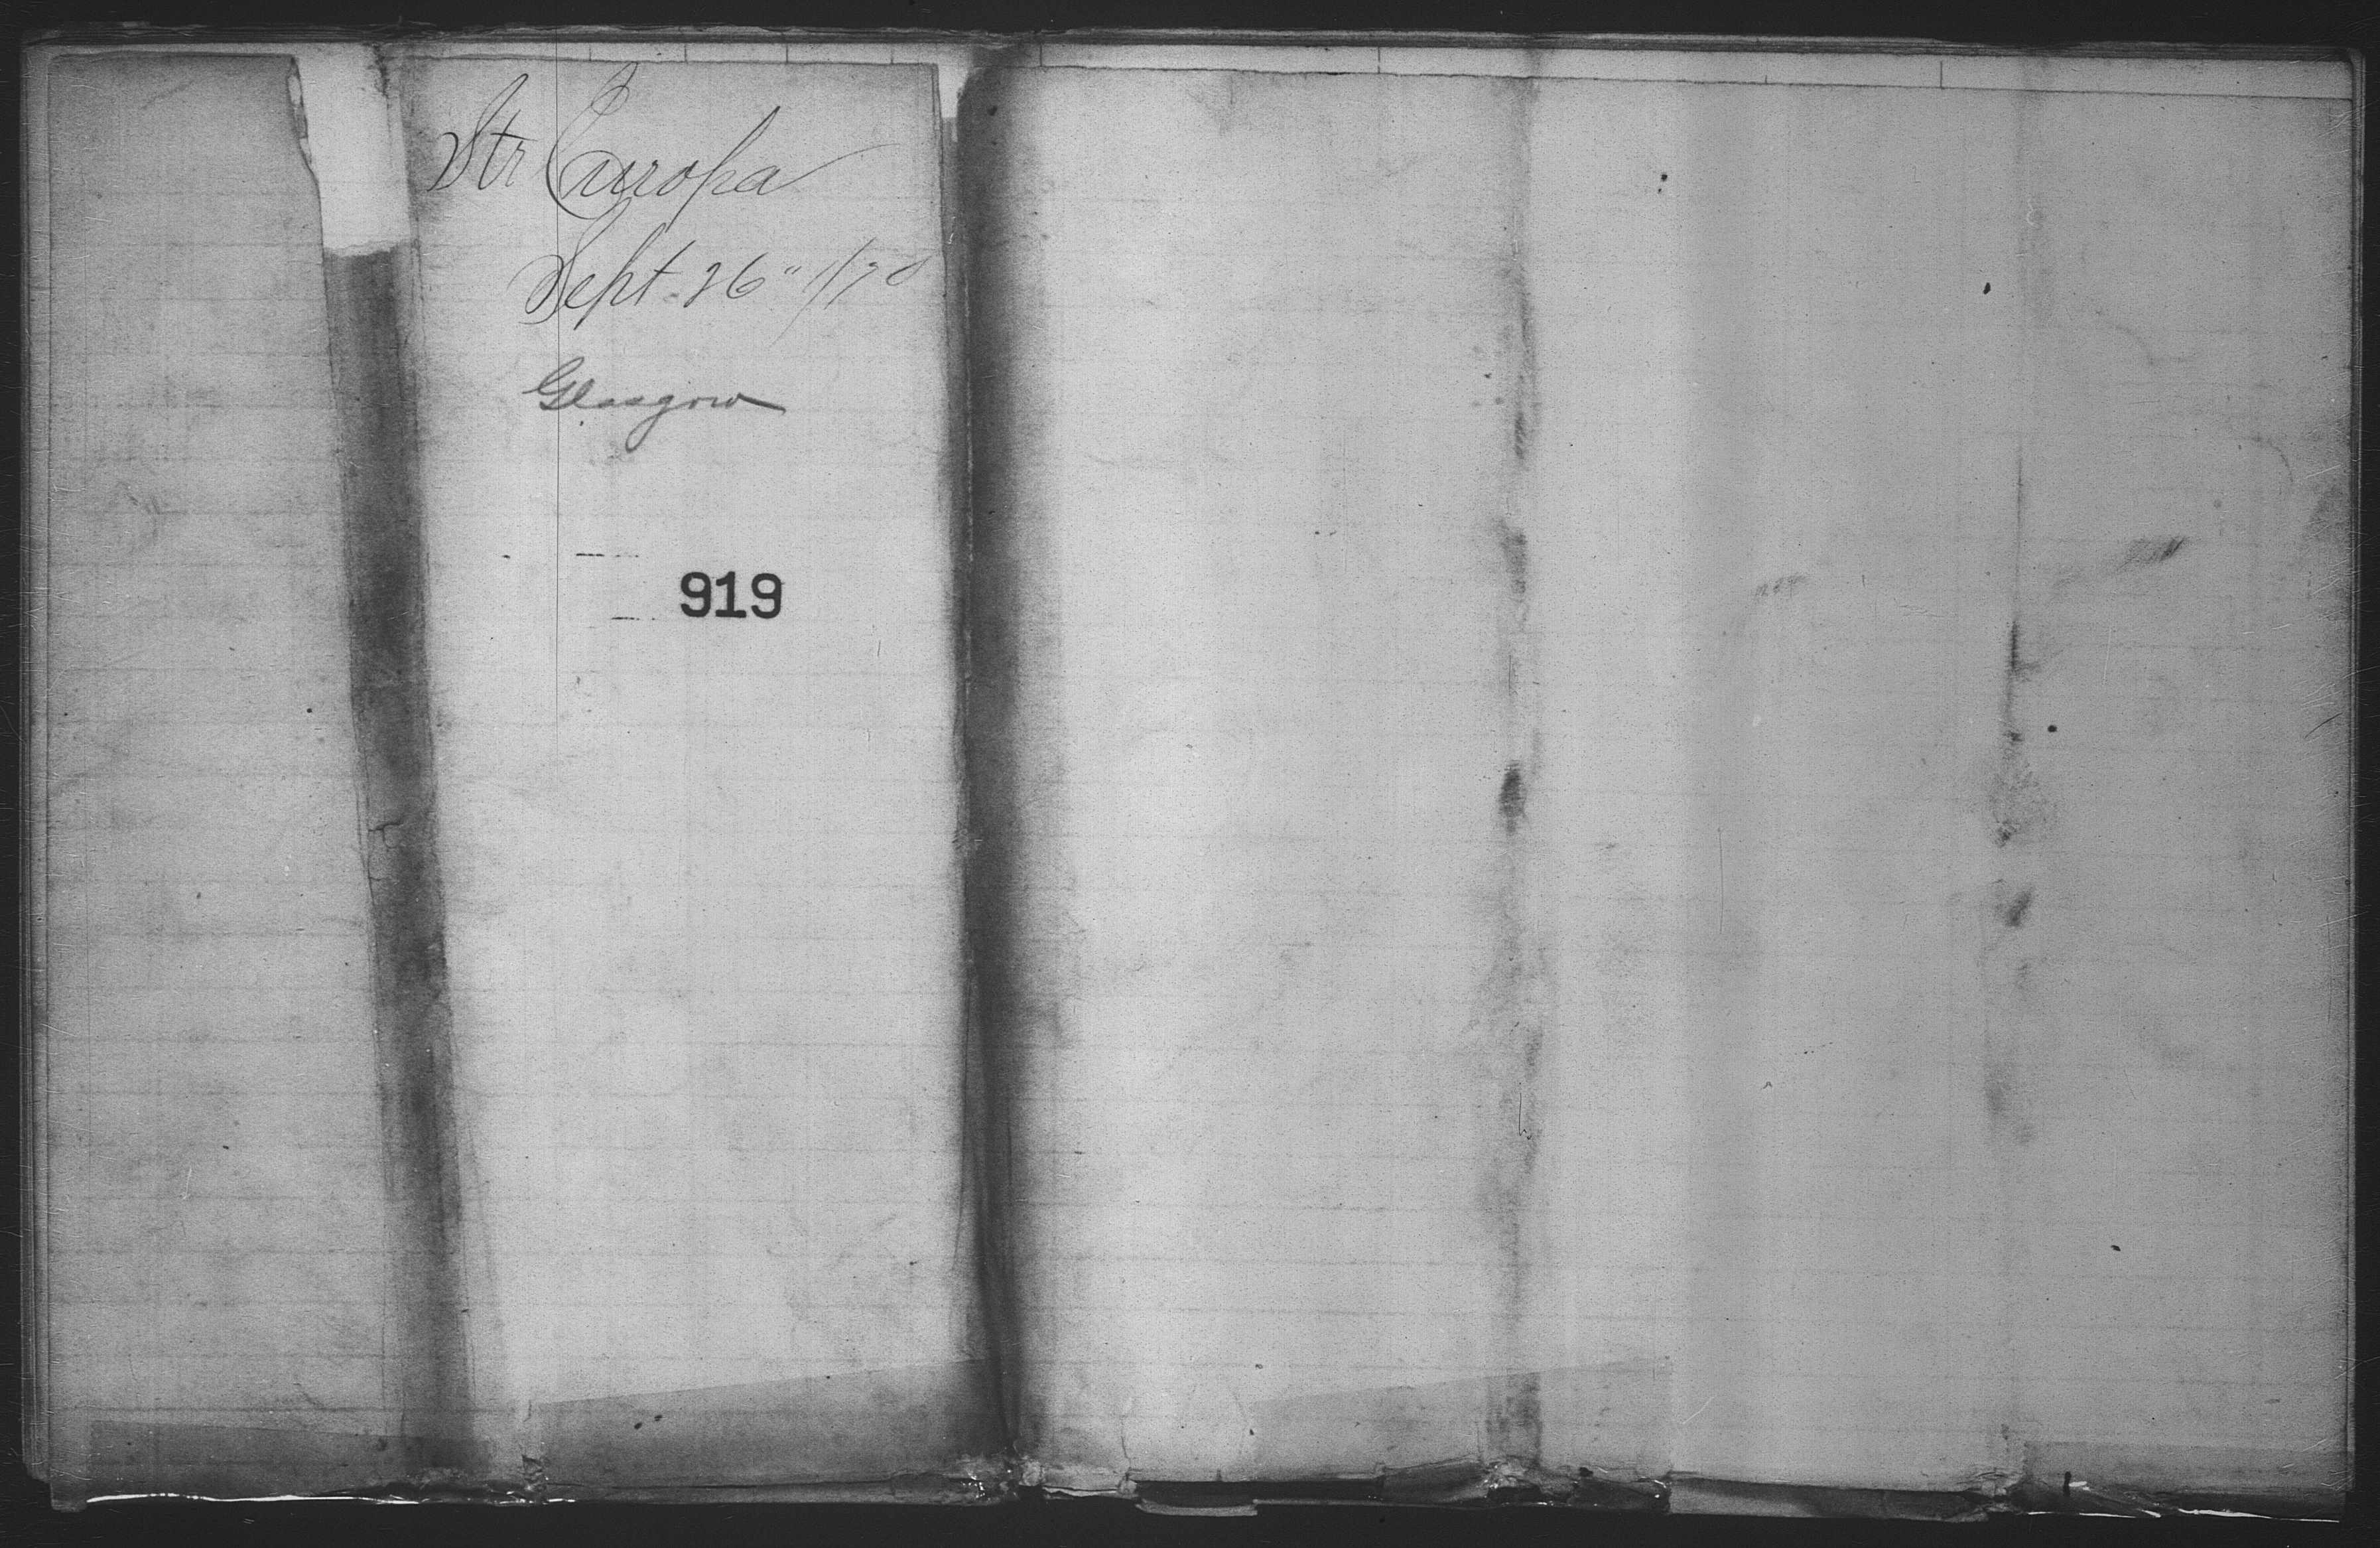 Str Europa
Sept. 26" 1/70
Glasgow
919